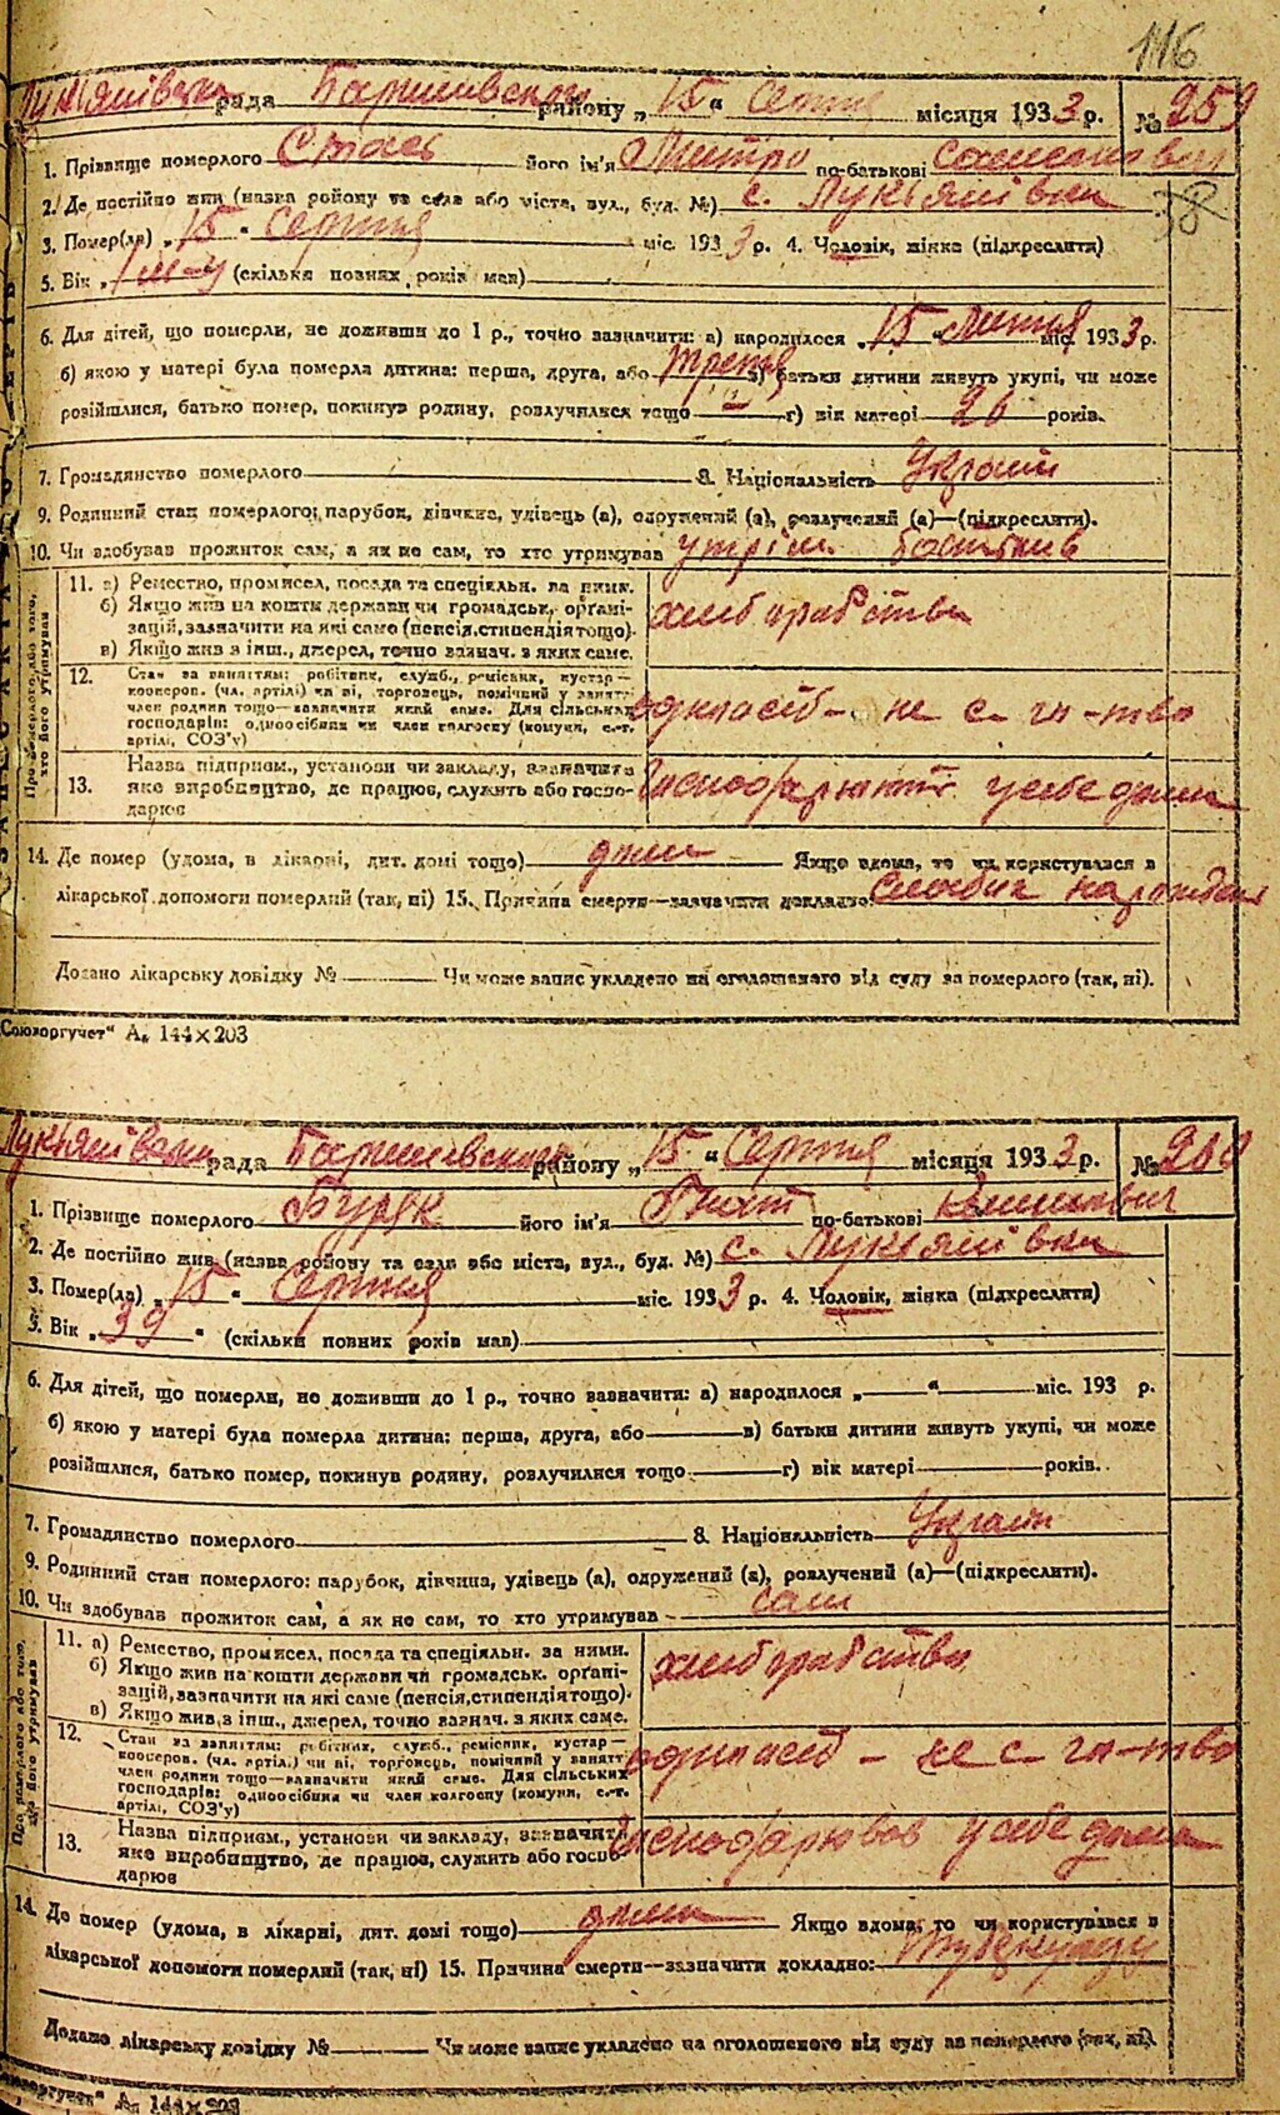 116
Лукьянівська рада Баришівського району „15“ Серпня місяця 1933 р. № 259
1. Прізвище померлого Стась його ім'я Митро по-батькові
2. Де постійно жив (назва району та села або міста, вул., буд. №) с. Лукьянівка
3. Помер(ла) „15“ Серпня міс. 1933 р. 4. Чоловік, жінка (підкреслити)
5. Вік „1 м-ц (скільки повних років мав)
6. Для дітей, що померли, не доживши до 1 р., точно зазначити: а) народилося „15“ Липня міс. 1933 р.
б) якою у матері була померла дитина: перша, друга, або третя в) батьки дитини живуть укупі, чи може
розійшлися, батько помер, покинув родину, розлучилися тощо г) вік матері 26 років.
7. Громадянство померлого 8. Національність Україн
9. Родинний стан померлого: парубок, дівчина, удівець (а), одружений (а), розлучений (а)—(підкреслити).
10. Чи здобував прожиток сам, а як не сам, то хто утримував утрім. батьків
Про померлого або того, хто його утримував
11. а) Ремество, промисел, посада та спеціяльн. за ними.
б) Якщо жив на кошти держави чи громадськ. орґані-
зацій, зазначити на які саме (пенсія, стипендія тощо).
в) Якщо жив з інш., джерел, точно зазнач. з яких саме.
хлеборабства
12. Стан за заняттям: робітник, служб., ремісник, кустар—
коопеpов. (чл. артілі) чи ні, торговець, помічний у занятті
член родини тощо—зазначити який саме. Для сільських
господарів: одноосібник чи член колгоспу (комуни, с.-г.
артілі, СОЗ'у)
одинасеб – не с – гп-тво
13. Назва підприєм., установи чи закладу, зазначити
яке виробництво, де працює, служить або госпо-
дарює
Господарюють у себе дома
14. Де помер (удома, в лікарні, дит. домі тощо) дома Якщо вдома, то чи користувався в
лікарської допомоги померлий (так, ні) 15. Причина смерти—зазначити докладно: слабих
Додано лікарську довідку № Чи може запис укладено на оголошеного від суду за померлого (так, ні).
„Союзоргучет“ А₄ 144×203
Лукьянівська рада Баришівського району „15“ Серпня місяця 1933 р. № 260
1. Прізвище померлого Буряк його ім'я Гнат по-батькові
2. Де постійно жив (назва району та села або міста, вул., буд. №) с. Лукьянівка
3. Помер(ла) „15“ Серпня міс. 1933 р. 4. Чоловік, жінка (підкреслити)
5. Вік „39“ (скільки повних років мав)
6. Для дітей, що померли, не доживши до 1 р., точно зазначити: а) народилося „ “ міс. 193 р.
б) якою у матері була померла дитина: перша, друга, або в) батьки дитини живуть укупі, чи може
розійшлися, батько помер, покинув родину, розлучилися тощо г) вік матері років.
7. Громадянство померлого 8. Національність Україн
9. Родинний стан померлого: парубок, дівчина, удівець (а), одружений (а), розлучений (а)—(підкреслити).
10. Чи здобував прожиток сам, а як не сам, то хто утримував – сам
Про померлого або того, хто його утримував
11. а) Ремество, промисел, посада та спеціяльн. за ними.
б) Якщо жив на кошти держави чи громадськ. орґані-
зацій, зазначити на які саме (пенсія, стипендія тощо).
в) Якщо жив з інш., джерел, точно зазнач. з яких саме.
хлеборабства
12. Стан за заняттям: робітник, служб., ремісник, кустар—
коопеpов. (чл. артілі) чи ні, торговець, помічний у занятті
член родини тощо—зазначити який саме. Для сільських
господарів: одноосібник чи член колгоспу (комуни, с.-г.
артілі, СОЗ'у)
одинасеб – не с – гп-тво
13. Назва підприєм., установи чи закладу, зазначити
яке виробництво, де працює, служить або госпо-
дарює
Господарював у себе дома
14. Де помер (удома, в лікарні, дит. домі тощо) дома Якщо вдома, то чи користувався в
лікарської допомоги померлий (так, ні) 15. Причина смерти—зазначити докладно:
Додано лікарську довідку № Чи може запис укладено на оголошеного від суду за померлого (так, ні).
„Союзоргучет“ А₄ 144×203